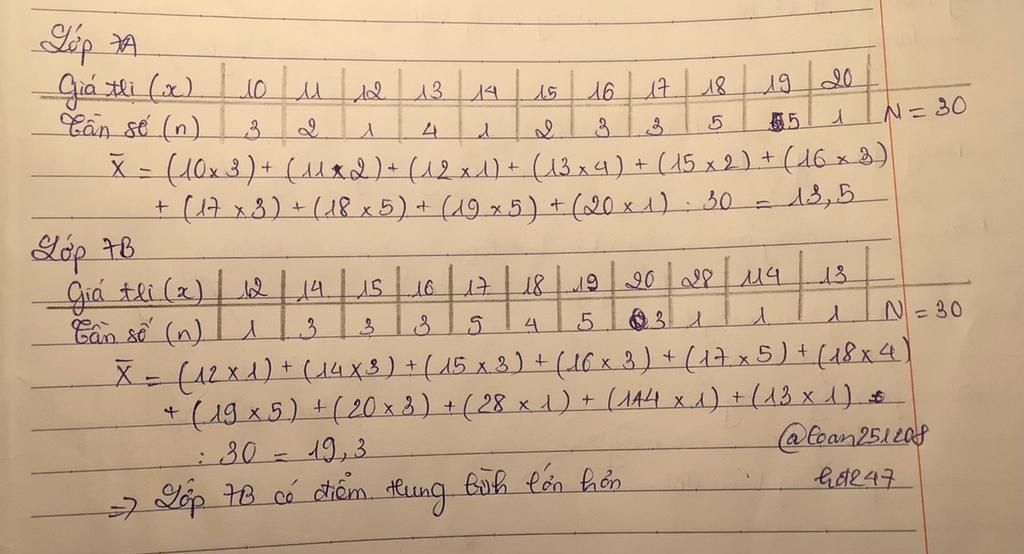 Lớp 7A
Giá trị (x) 10 11 12 13 14 15 16 17 18 19 20
Tần số (n) 3 2 1 4 1 2 3 3 5 5 1 N = 30
X̄ = (10x3) + (11x2) + (12x1) + (13x4) + (15x2) + (16x3)
+ (17x3) + (18x5) + (19x5) + (20x1) : 30 = 13,5
Lớp 7B
Giá trị (x) 12 14 15 16 17 18 19 20 28 114 13
Tần số (n) 1 3 3 3 5 4 5 3 1 1 1 N = 30
X̄ = (12x1) + (14x3) + (15x3) + (16x3) + (17x5) + (18x4)
+ (19x5) + (20x3) + (28x1) + (114x1) + (13x1)
: 30 = 19,3
@toan251208
=> Lớp 7B có điểm trung bình lớn hơn